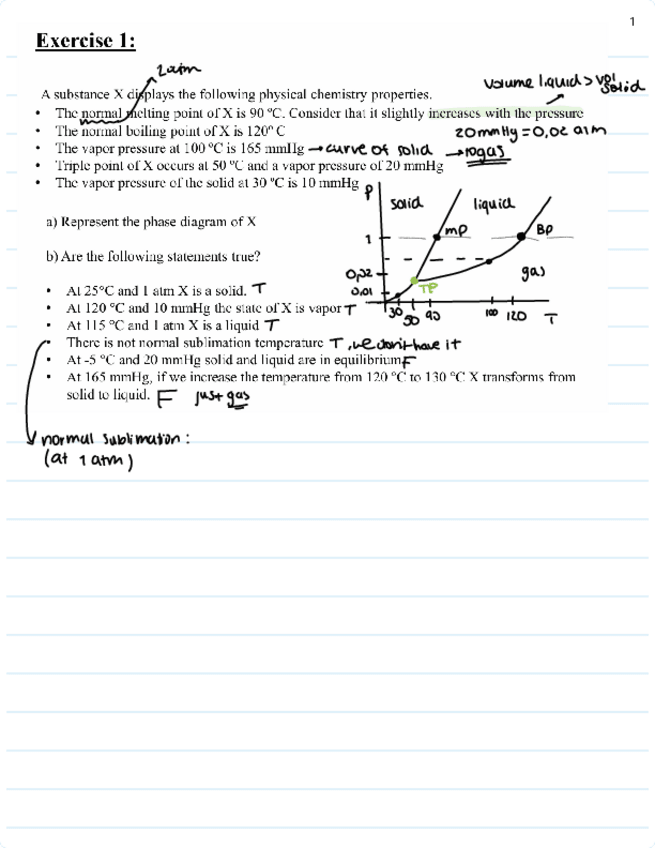 1
Exercise 1:
1 atm
volume liquid > vol solid
A substance X displays the following physical chemistry properties.
• The normal melting point of X is 90 ºC. Consider that it slightly increases with the pressure
• The normal boiling point of X is 120º C
20 mmHg = 0,02 atm
• The vapor pressure at 100 ºC is 165 mmHg → curve of solid → to gas
• Triple point of X occurs at 50 ºC and a vapor pressure of 20 mmHg
• The vapor pressure of the solid at 30 ºC is 10 mmHg
P
solid
liquid
a) Represent the phase diagram of X
1
mp
BP
b) Are the following statements true?
0,02
gas
0,01
TP
30
50
90
100
120
T
• At 25°C and 1 atm X is a solid. T
• At 120 ºC and 10 mmHg the state of X is vapor T
• At 115 ºC and 1 atm X is a liquid T
• There is not normal sublimation temperature T, we don't have it
• At -5 ºC and 20 mmHg solid and liquid are in equilibrium F
• At 165 mmHg, if we increase the temperature from 120 ºC to 130 ºC X transforms from
solid to liquid. F just gas
normal sublimation:
(at 1 atm)